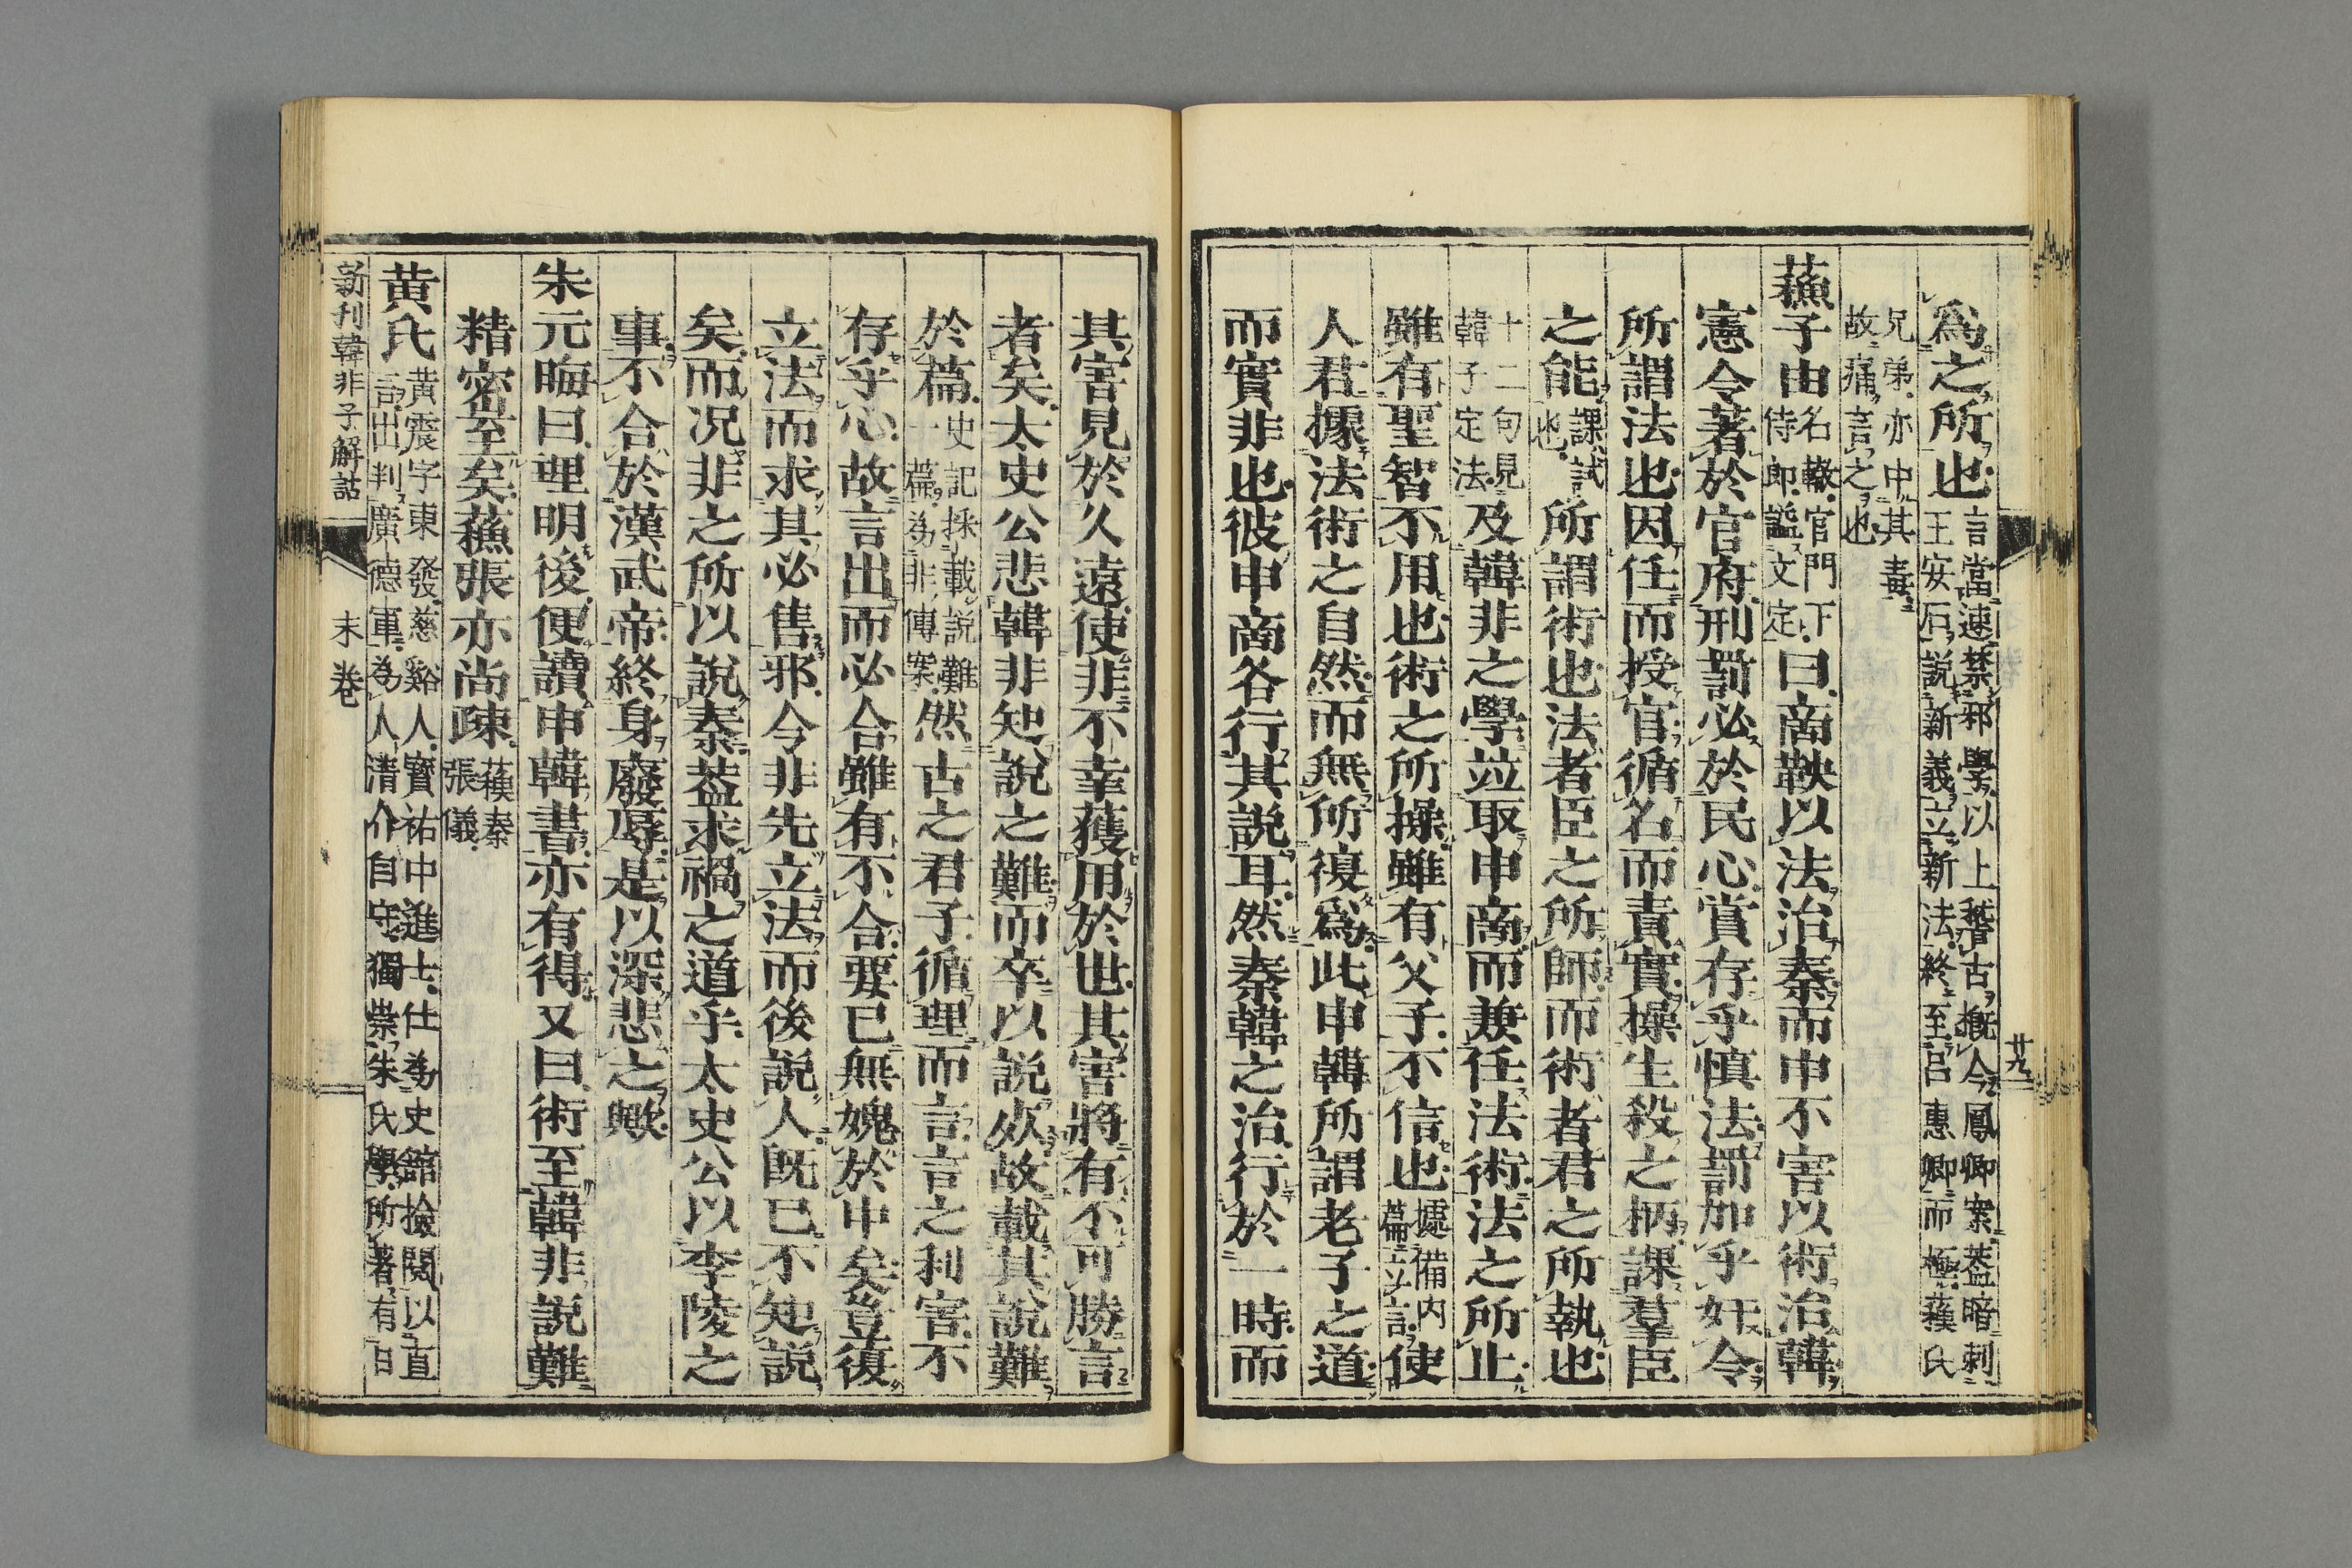 爲之所也言當速禁邪學以上稽古摡今鳳卿案葢暗刺王安石說新義立新法終至呂惠卿而極蘓氏
兄弟亦中其毒故痛言之也
蘓子由名轍官門下侍郎諡文定曰商鞅以法治秦而申不害以術治韓
憲令著於官府刑罰必於民心賞存乎慎法罰加乎奸令
所謂法也因任而授官循名而責實操生殺之柄課羣臣
之能課試也所謂術也法者臣之所師而術者君之所執也
十二句見韓子定法及韓非之學竝取申商而兼任法術法之所止
雖有聖智不用也術之所操雖有父子不信也據備内篇立言使
人君據法術之自然而無所復爲此申韓所謂老子之道
而實非也彼申商各行其說耳然秦韓之治行於一時而
其害見於久遠使非不幸獲用於世其害將有不可勝言
者矣太史公悲韓非知說之難而卒以說死故載其說難
於篇史記採載說難一篇為非傳案然古之君子循理而言言之利害不
存乎心故言出而必合雖有不合要已無媿於中矣豈復
立法而求其必售邪今非先立法而後說人既已不知說
矣而况非之所以說秦葢求禍之道乎太史公以李陵之
事不合於漢武帝終身廢辱是以深悲之歟
朱元晦曰理明後便讀申韓書亦有得又曰術至韓非說難
精密至矣蘓張亦尚疎蘓秦張儀
黄氏黄震字東發慈谿人寶祐中進士仕為史館撿閱以直言出判廣德軍為人清介自守獨崇朱氏學所著有日
新刊韓非子解詁 末卷
廿九